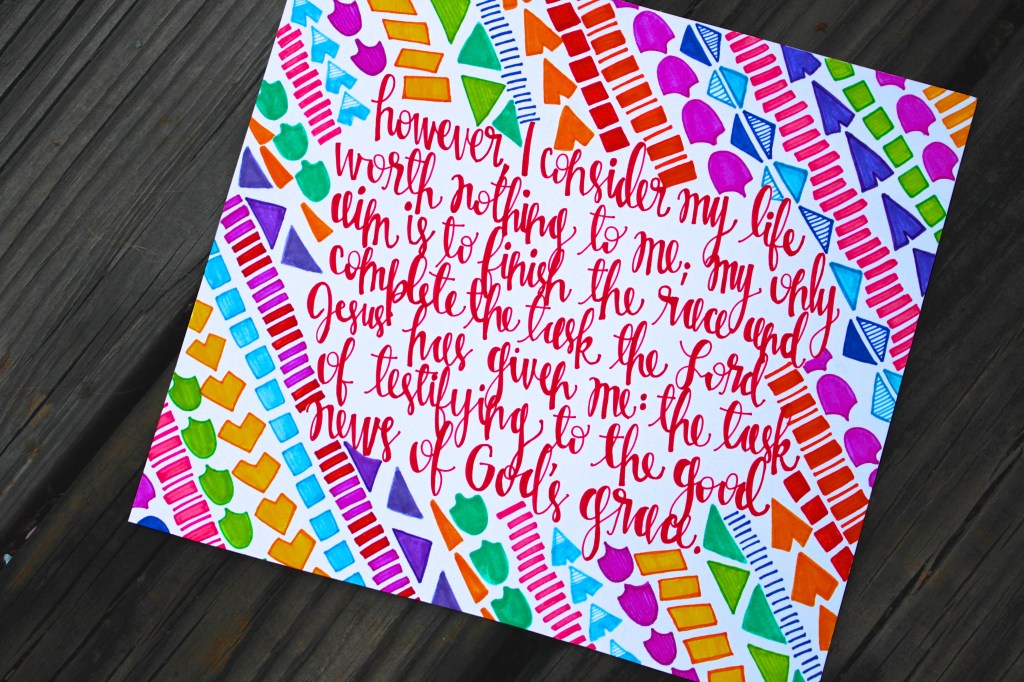 however, I consider my life
worth nothing to me; my only
aim is to finish the race and
complete the task the Lord
Jesus has given me: the task
of testifying to the good
news of God's grace.